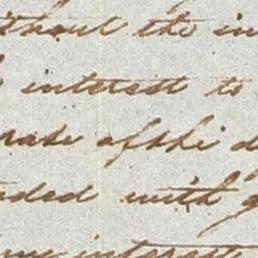 without the in
interest to
rate of the d
ded with g
interest